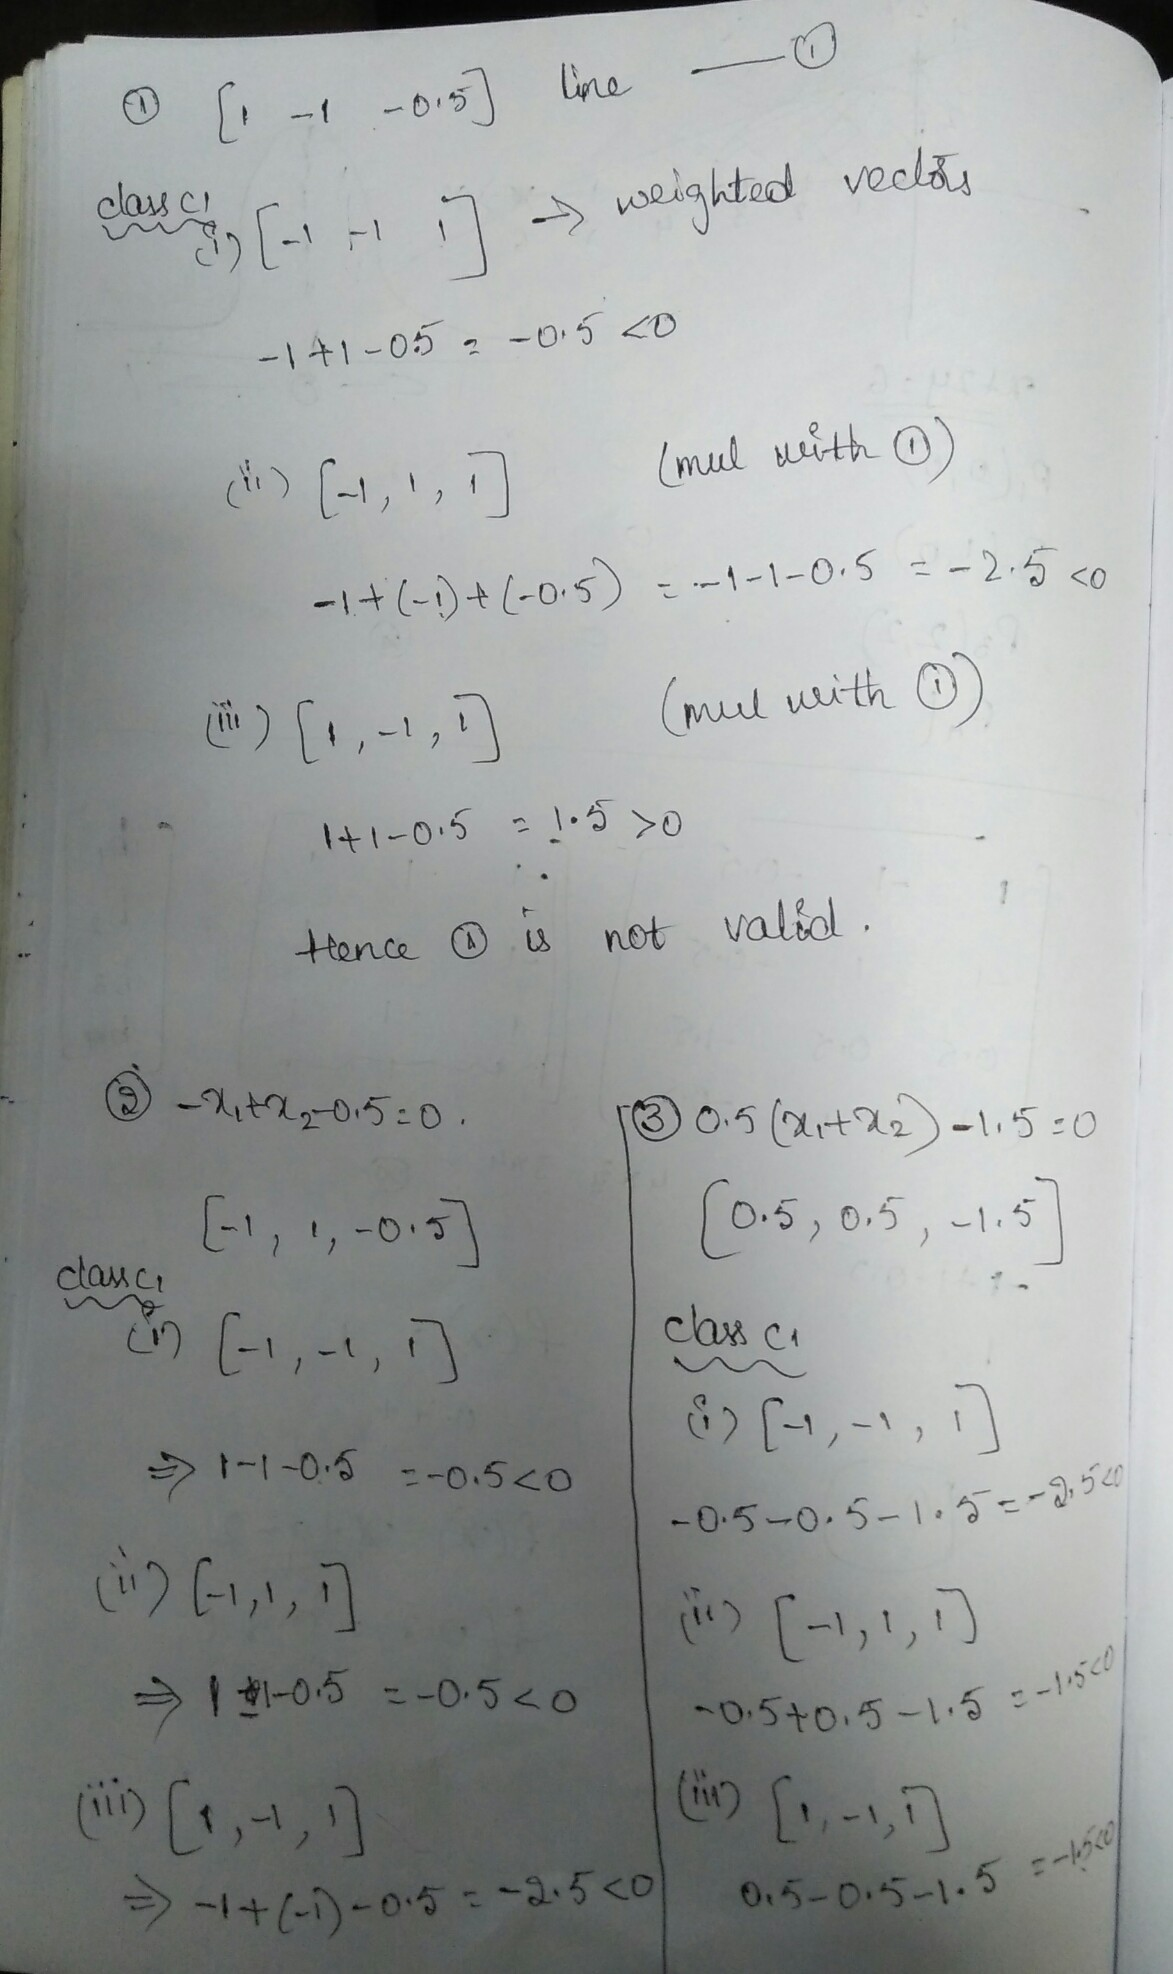 ① [1 -1 -0.5] line —①
class C1
(i) [-1 -1 1] → weighted vectors
-1+1-05 = -0.5 <0
(ii) [-1, 1, 1] (mul with ①)
-1+(-1)+(-0.5) = -1-1-0.5 = -2.5 <0
(iii) [1, -1, 1] (mul with ①)
1+1-0.5 = 1.5 >0
Hence ① is not valid.
② -x₁+x₂-0.5=0.
[-1, 1, -0.5]
class C1
(i) [-1, -1, 1]
⇒ 1-1-0.5 = -0.5<0
(ii) [-1, 1, 1]
⇒ 1 1-0.5 = -0.5<0
(iii) [1, -1, 1]
⇒ -1+(-1)-0.5 = -2.5<0
③ 0.5(x₁+x₂)-1.5=0
[0.5, 0.5, -1.5]
class C1
(i) [-1, -1, 1]
-0.5-0.5-1.5 = -2.5<0
(ii) [-1, 1, 1]
-0.5+0.5-1.5 = -1.5<0
(iii) [1, -1, 1]
0.5-0.5-1.5 = -1.5<0